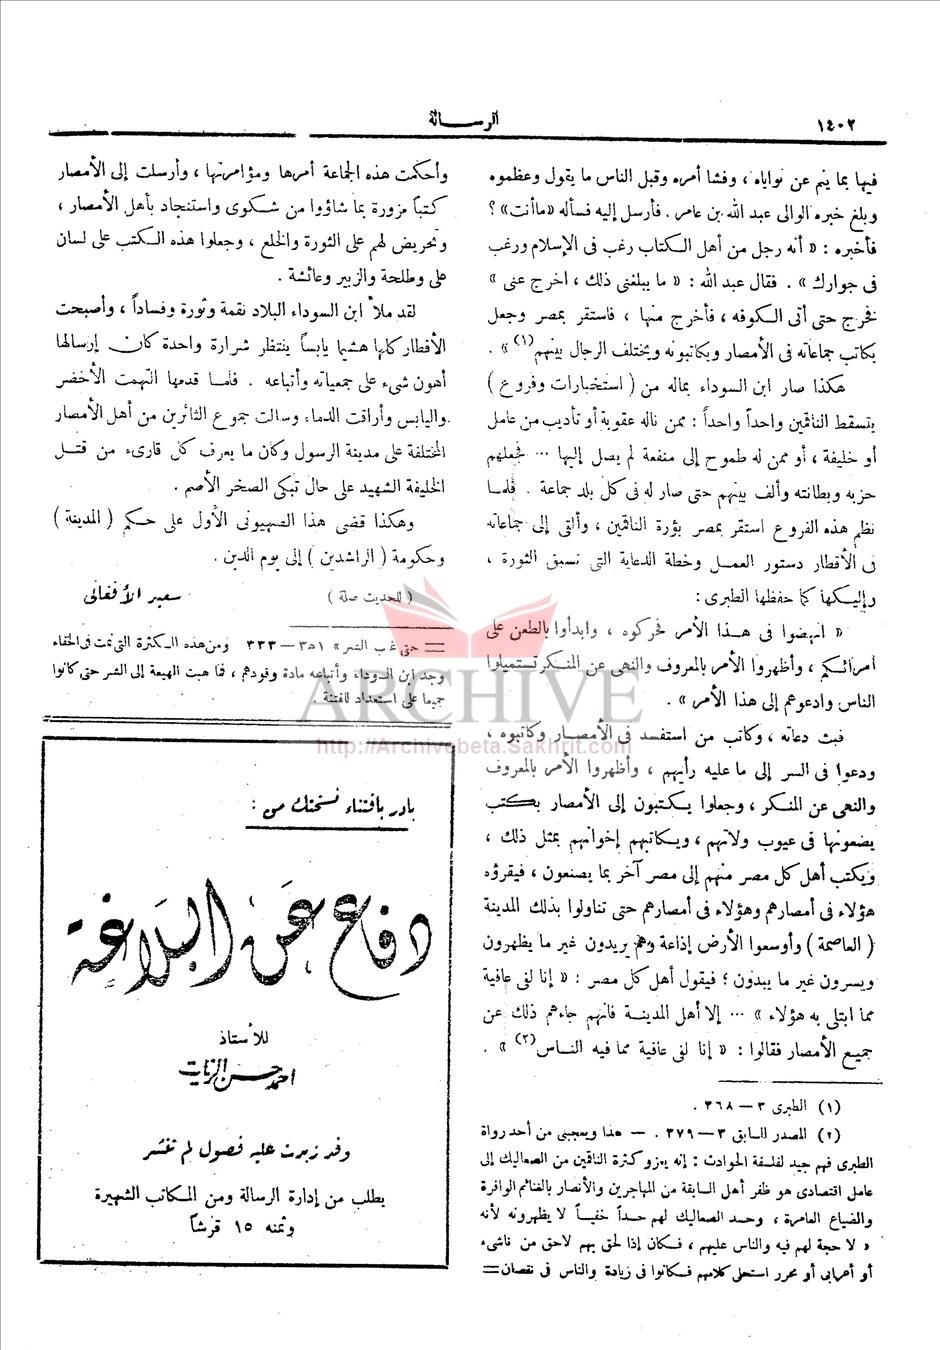 ١٤٠٢
الرسالة
فيها بما ينم عن نواياه ، وفشا أمره وقبل الناس ما يقول وعظموه
وبلغ خبره الوالى عبد الله بن عامر . فأرسل إليه فسأله «ما أنت» ؟
فأخبره : « أنه رجل من أهل الكتاب رغب فى الإسلام ورغب
فى جوارك » . فقال عبد الله : « ما يبلغنى ذلك ، اخرج عنى »
فخرج حتى أتى الكوفه ، فأخرج منها ، فاستقر بمصر وجعل
يكاتب جماعاته فى الأمصار ويكاتبونه ويختلف الرجال بينهم(١) » .
هكذا صار ابن السوداء بماله من ( استخبارات وفروع )
يتسقط الناقمين واحداً واحداً : ممن ناله عقوبة أو تأديب من عامل
أو خليفة ، أو ممن له طموح إلى منفعة لم يصل إليها ... فجعلهم
حزبه وبطانته وألف بينهم حتى صار له فى كل بلد جماعة . فلما
نظم هذه الفروع استقر بمصر بؤرة الناقمين ، وألقى إلى جماعاته
فى الأقطار دستور العمل وخطة الدعاية التى تسبق الثورة ،
وإليكها كما حفظها الطبرى :
« انهضوا فى هذا الأمر فحركوه ، وابدأوا بالطعن على
أمرائكم ، وأظهروا الأمر بالمعروف والنهى عن المنكر تستميلوا
الناس وادعوهم إلى هذا الأمر » .
فبث دعاته ، وكاتب من استفسد فى الأمصار وكاتبوه ،
ودعوا فى السر إلى ما عليه رأيهم ، وأظهروا الأمر بالمعروف
والنهى عن المنكر ، وجعلوا يكتبون إلى الأمصار بكتب
يضعونها فى عيوب ولاتهم ، ويكاتبهم إخوانهم بمثل ذلك ،
ويكتب أهل كل مصر منهم إلى مصر آخر بما يصنعون ، فيقرؤه
هؤلاء فى أمصارهم وهؤلاء فى أمصارهم حتى تناولوا بذلك المدينة
( العاصمة ) وأوسعوا الأرض إذاعة وهم يريدون غير ما يظهرون
ويسرون غير ما يبدون ؛ فيقول أهل كل مصر : « إنا لفى عافية
مما ابتلى به هؤلاء » ... إلا أهل المدينة فانهم جاءهم ذلك عن
جميع الأمصار فقالوا : « إنا لفى عافية مما فيه الناس(٢) » .
(١) الطبرى ٣ — ٣٦٨ .
(٢) المصدر السابق ٣ — ٣٧٩ . — هذا ويعجبنى من أحد رواة
الطبرى فهم جيد لفلسفة الحوادث : إنه يعزو كثرة الناقمين من الصعاليك إلى
عامل اقتصادى هو ظفر أهل السابقة من المهاجرين والأنصار بالغنائم الوافرة
والضياع العامرة ، وحسد الصعاليك لهم حسداً خفياً لا يظهرونه لأنه
« لا حجة لهم فيه والناس عليهم ، فكان إذا لحق بهم لاحق من ناشىء
أو أعرابى أو محرر استحلى كلامهم فكانوا فى زيادة والناس فى نقصان =
وأحكمت هذه الجماعة أمرها ومؤامرتها ، وأرسلت إلى الأمصار
كتباً مزورة بما شاؤوا من شكوى واستنجاد بأهل الأمصار ،
وتحريض لهم على الثورة والخلع ، وجعلوا هذه الكتب على لسان
على وطلحة والزبير وعائشة .
لقد ملأ ابن السوداء البلاد نقمة وثورة وفساداً ، وأصبحت
الأقطار كلها هشيما يابساً ينتظر شرارة واحدة كان إرسالها
أهون شىء على جمعياته وأتباعه . فلما قدمها التهمت الأخضر
واليابس وأراقت الدماء وسالت جموع الثائرين من أهل الأمصار
المختلفة على مدينة الرسول وكان ما يعرف كل قارىء من قتل
الخليفة الشهيد على حال تبكى الصخر الأصم .
وهكذا قضى هذا الصهيونى الأول على حكم ( المدينة )
وحكومة ( الراشدين ) إلى يوم الدين .
( للحديث صلة )
سعيد الأفغانى
= حتى غلب الشر » ٣٣٣ ومن هذه الكثرة التى نمت فى الخفاء
وجد ابن السوداء وأتباعه مادة وقودهم ، فما هبت الهيعة إلى الشر حتى كانوا
جميعا على استعداد للفتنة .
ARCHIVE
http://Archivebeta.Sakhrit.com
بادر باقتناء نسختك من :
دفاع عن البلاغة
للأستاذ
احمد حسن الزيات
وقد زيدت عليه فصول لم تنشر
يطلب من إدارة الرسالة ومن المكاتب الشهيرة
وثمنه ١٥ قرشاً